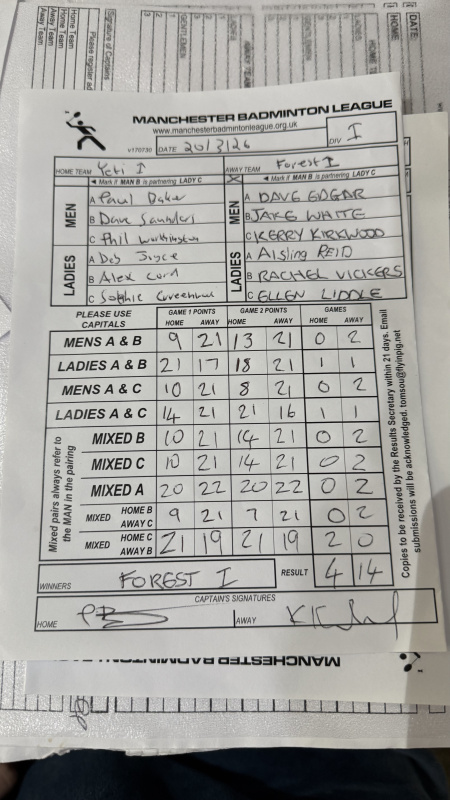 MANCHESTER BADMINTON LEAGUE
www.manchesterbadmintonleague.org.uk
v170730 DATE 20/3/26 DIV I
HOME TEAM Yeti I AWAY TEAM Forest I
◄ Mark if MAN B is partnering LADY C X ◄ Mark if MAN B is partnering LADY C
MEN A Paul Baker MEN A DAVE EDGAR
B Dave Saunders B JAKE WHITE
C Phil Worthington C KERRY KIRKWOOD
LADIES A Des Joyce LADIES A Aisling REID
B Alex Cord B RACHEL VICKERS
C Sophie Greenhow C ELLEN LIDDLE
PLEASE USE CAPITALS GAME 1 POINTS GAME 2 POINTS GAMES
HOME AWAY HOME AWAY HOME AWAY
MENS A & B 9 21 13 21 0 2
LADIES A & B 21 17 18 21 1 1
MENS A & C 10 21 8 21 0 2
LADIES A & C 14 21 21 16 1 1
Mixed pairs always refer to the MAN in the pairing
MIXED B 10 21 14 21 0 2
MIXED C 10 21 14 21 0 2
MIXED A 20 22 20 22 0 2
MIXED HOME B AWAY C 9 21 7 21 0 2
MIXED HOME C AWAY B 21 19 21 19 2 0
WINNERS FOREST I RESULT 4 14
CAPTAIN'S SIGNATURES
HOME AWAY
Copies to be received by the Results Secretary within 21 days. Email
submissions will be acknowledged. tomsou@flyinpig.net